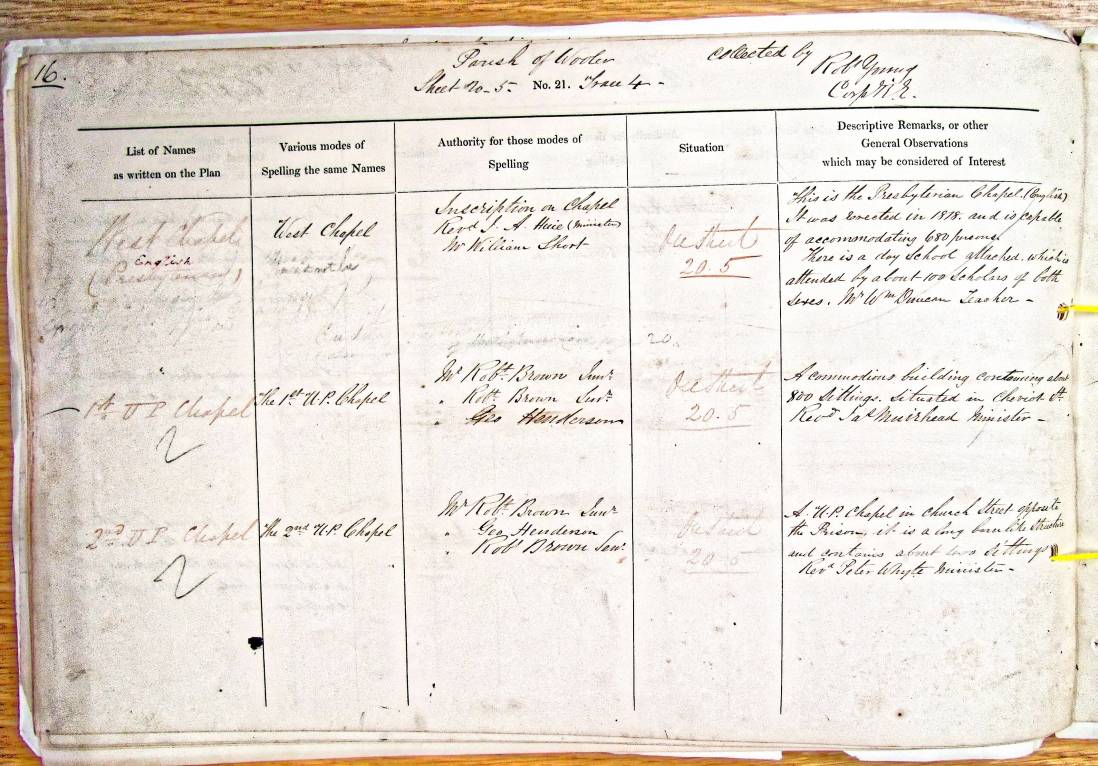 16.
Parish of Wooler
collected by
Robt Young
Corpl R.E.
Sheet No. 5. No. 21. Trace 4 -
List of Names
as written on the Plan
Various modes of
Spelling the same Names
Authority for those modes of
Spelling
Situation
Descriptive Remarks, or other
General Observations
which may be considered of Interest
West Chapel
English
(Presbyterian)
West Chapel
Inscription on Chapel
Revd J. A. Huie (Minister)
Mr William Short
See Sheet
20.5
This is the Presbyterian Chapel. (English)
It was Erected in 1818. and is capable
of accommodating 680 persons.
There is a day School attached, which is
attended by about 100 Scholars of both
sexes. Mr Wm Duncan Teacher -
20.
1st U P Chapel
2
The 1st U.P. Chapel
Mr Robt. Brown Junr.
" Robt. Brown Senr.
" Geo Henderson
See Sheet
20.5
A commodious building containing about
800 Sittings. Situated in Cheviot St.
Revd Jas Muirhead Minister -
2nd U P Chapel
2
The 2nd U.P. Chapel
Mr Robt. Brown Junr
" Geo Henderson
" Robt Brown Senr.
20.5
A. U.P. Chapel in Church Street opposite
the Prison, it is a long barn like Structure
and contains about Sittings
Revd Peter Whyte Minister -